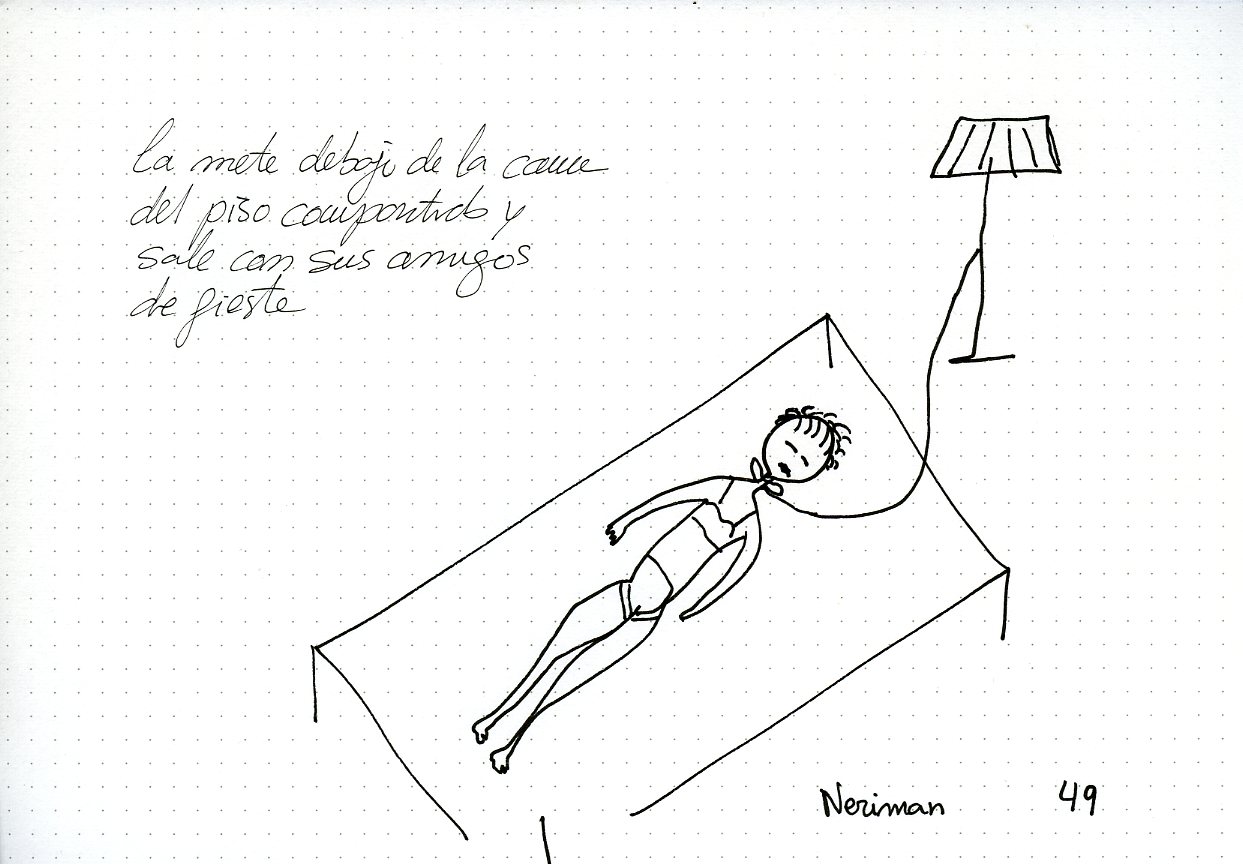 la mete debajo de la cama
del piso compartido y
sale con sus amigos
de fiesta
Neriman
49